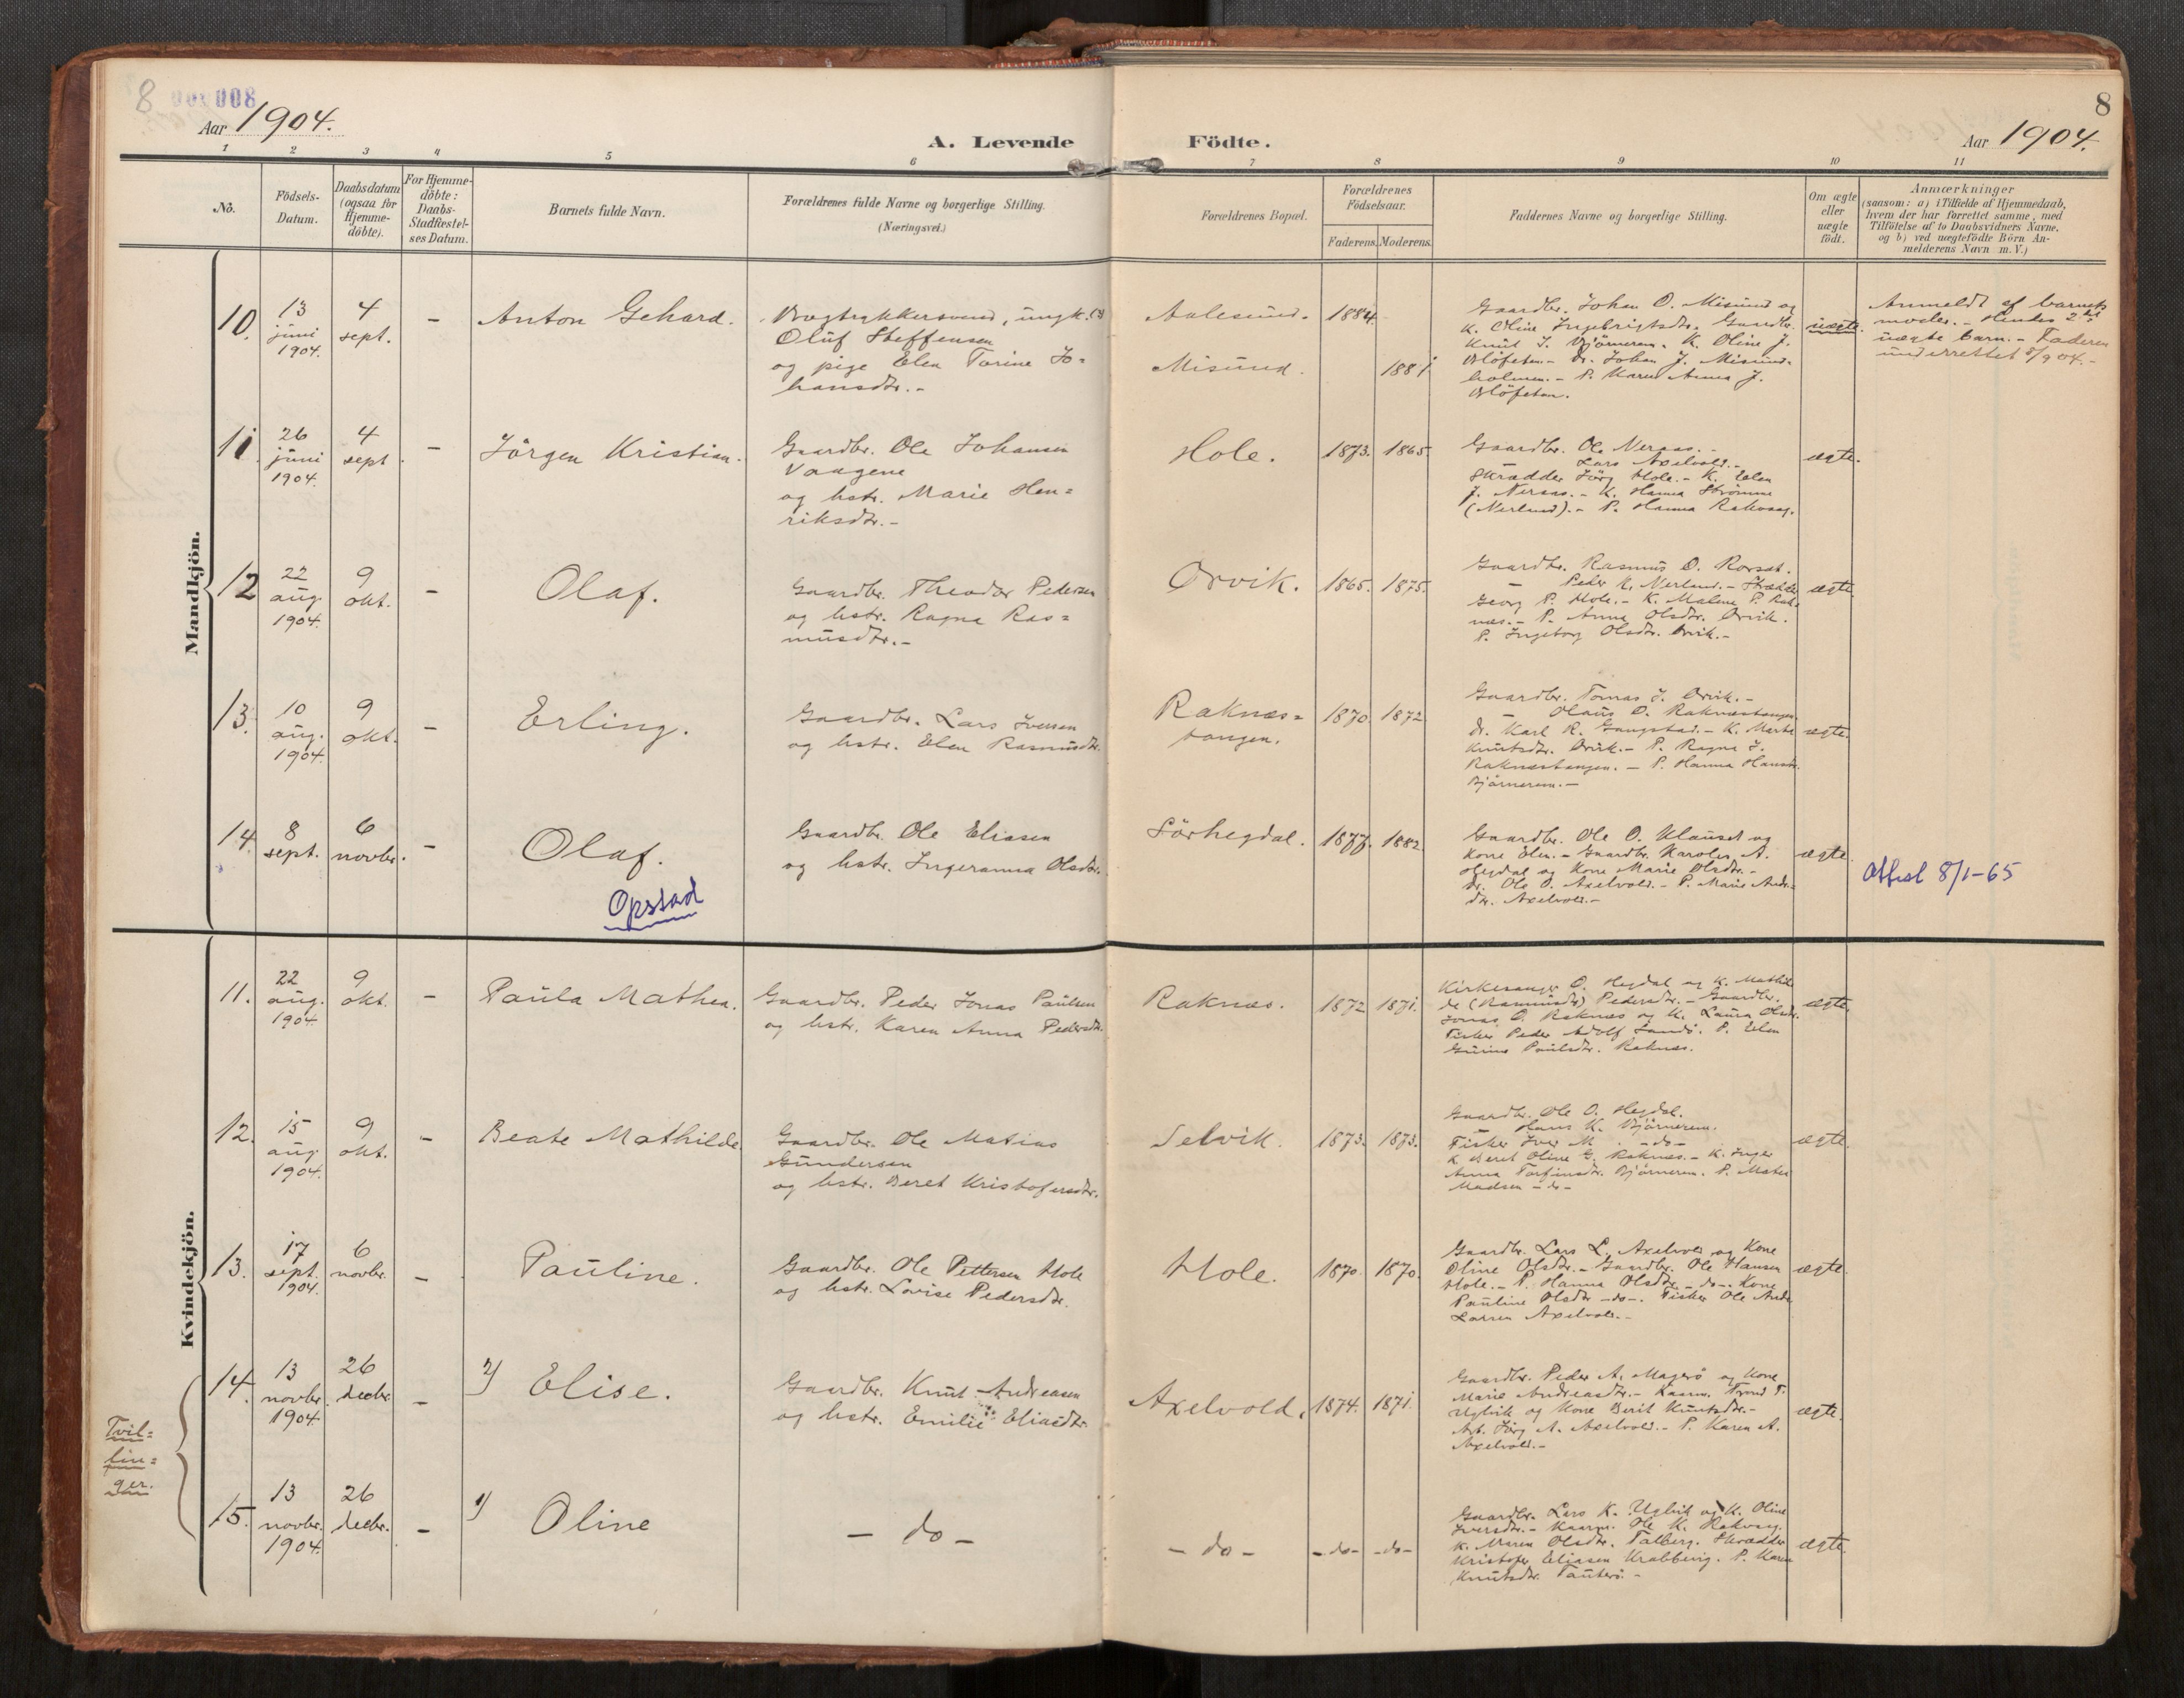 8 008
8
Aar 1904.
A. Levende Födte.
Aar 1904.
1 2 3 4 5 6 7 8 9 10 11
No.
Födsels-
Datum.
Daabsdatum
(ogsaa for
Hjemme-
döbte).
For Hjemme-
döbte:
Daabs-
Stadfæstel-
ses Datum.
Barnets fulde Navn.
Forældrenes fulde Navne og borgerlige Stilling.
(Næringsvei.)
Forældrenes Bopæl.
Forældrenes
Födselsaar.
Faderens. Moderens.
Faddernes Navne og borgerlige Stilling.
Om ægte
eller
uægte
födt.
Anmærkninger
(saasom: a) i Tilfælde af Hjemmedaab,
hvem der har forrettet samme, med
Tilföielse af to Daabsvidners Navne,
og b) ved uægtefödte Börn An-
melderens Navn m. V.)
Mandkjön.
10.
13
juni
1904.
4
sept.
-
Anton Gehard.
Bogtrykkersvend, ungk.
Oluf Steffensen
og pige Elen Torine Jo=
hansdtr.-
Aalesund.
Misund.
1884.
1881
Gaardbr. Johan O. Misund og
K. Oline Ingebrigtsdtr. Gaardbr.
Knut J. Björnerem. K. Oline J.
Johan J. Misund-
holmen.- P. Karen Anna J.
uægte.
Anmeldt af barnets
moder.- Hendes 2det
uægte barn.- Faderen
underrettet 8/9 04.-
11.
26
juni
1904.
4
sept.
-
Jörgen Kristian.
Gaardbr. Ole Johansen
Vaagene
og hstr. Marie Hen=
riksdtr.-
Hole.
1873. 1865.
Gaardbr. Ole Nersas.-
Lars Axelvold.-
Skrædder Jörg. Hole.- K. Elen
J. Nersas.- K. Hanna Strömme
(Nerland).- P. Hanna Rakvaag.
ægte.
12
22
aug.
1904.
9
okt.
-
Olaf.
Gaardbr. Theodor Pedersen
og hstr. Ragna Ras=
musdtr.-
Orvik.
1865. 1875.
Gaardbr. Rasmus O. Rorset.
- Peder K. Nerland.- Skrædder
Georg P. Hole.- K. Malene P. Rak-
næs.- P. Anna Olsdtr. Orvik.
P. Ingeborg Olsdtr. Orvik.-
ægte.
13.
10
aug.
1904.
9
okt.
-
Erling.
Gaardbr. Lars Iversen
og hstr. Elen Rasmusdtr.
Raknæs=
tangen.
1870. 1872.
Gaardbr. Tomas J. Orvik.-
- Olaus O. Raknæstangen.
Karl R. Gangstad.- K. Marte
Knutsdtr. Orvik.- P. Ragna J.
Raknæstangen.- P. Hanna Hansdtr.
Björnerem.-
ægte.
14.
8
sept.
6
novbr.
-
Olaf.
Opstad
Gaardbr. Ole Eliasen
og hstr. Ingeranna Olsdtr.
Sörhegdal.
1877. 1882.
Gaardbr. Ole O. Klauset og
Kone Elen.- Gaardbr. Karoles A.
Hegdal og Kone Marie Olsdtr.-
Ole O. Axelvold.- P. Marie Andr.=
dtr. Axelvold.-
ægte.
Attest 8/1-65
Kvindekjön.
11.
22
aug.
1904.
9
okt.
-
Paula Mathea.
Gaardbr. Peder Jonas Paulsen
og hstr. Karen Anna Pedersdtr.
Raknæs.
1872 1871.
Kirkesanger O. Hegdal og K. Mathil
de (Rasmusdtr) Pedersdtr.- Gaardbr.
Jonas O. Raknæs og K. Laura Olsdtr.
Fisker Peder Adolf Sandö. P. Elen
Gurine Paulsdtr. Raknæs.
ægte.
12.
15
aug.
1904.
9
okt.
-
Beate Mathilde
Gaardbr. Ole Matias
Gundersen
og hstr. Beret Kristofersdtr.
Selvik.
1873. 1873.
Gaardbr. Ole O. Hegdal.
- Hans K. Björnerem.
Fisker Iver M. -do-
K. Beret Oline G. Raknæs.- K. Inger
Anna Torfinnsdtr. Björnerem. P. Matea
Madsen -do-
ægte.
13.
17
sept.
1904.
6
novbr.
-
Pauline.
Gaardbr. Ole Pettersen Hole
og hstr. Lovise Pedersdtr.
Hole.
1870. 1870.
Gaardbr. Lars L. Axelvold og Kone
Oline Olsdtr.- Gaardbr. Ole Hansen
Hole.- P. Hanna Olsdtr.-do-. Kone
Pauline Olsdtr -do-. Fisker Ole Andr.
Larsen Axelvold.-
ægte.
Tvil=
lin=
ger.
14.
13
novbr.
1904.
26
decbr.
-
2) Elise.
Gaardbr. Knut Andreasen
og hstr. Emilie Eliasdtr.
Axelvold.
1874. 1871.
Gaardbr. Peder A. Magerö og Kone
Marie Andreasdtr.- Kaarm. Trond T.
Uglvik og Kone Berit Knutsdtr.-
Arb. Jörg A. Axelvold.- P. Karen A.
Axelvold.-
ægte.
15.
13
novbr.
1904.
26
decbr.
-
1) Oline
- do -
- do -
-do- -do-
Gaardbr. Lars K. Uglvik og K. Oline
Iversdtr.- Kaarm. Ole K. Rakvaag.
K. Maren Olsdtr. Talberg. Skrædder
Kristofer Eliasen Krabbevig. P. Karen
Knutsdtr. Tauterö.-
ægte.